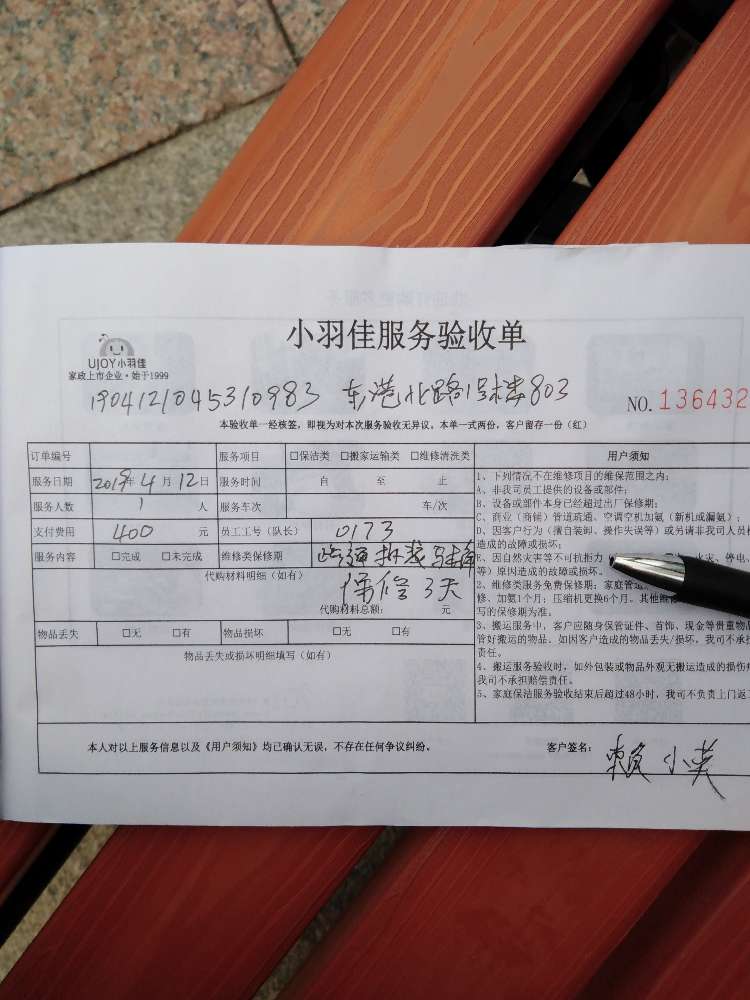 小羽佳服务验收单
UJOY小羽佳
家政上市企业·始于1999
190412104531 0983 东港北路1号楼803
NO. 136432
本验收单一经核签，即视为对本次服务验收无异议。本单一式两份，客户留存一份（红）
订单编号 服务项目 □保洁类 □搬家运输类 □维修清洗类 用户须知
服务日期 2019年 4 月 12 日 服务时间 自 至 止
服务人数 1 人 服务车次 车/次
支付费用 400 元 员工工号（队长） 0173
服务内容 □完成 □未完成 维修类保修期 疏通拆装马桶
保修3天
代购材料明细（如有）
代购材料总额： 元
物品丢失 □无 □有 物品损坏 □无 □有
物品丢失或损坏明细填写（如有）
1、下列情况不在维修项目的维保范围之内：
A、非我司员工提供的设备或部件；
B、设备或部件本身已经超过出厂保修期；
C、商业（商铺）管道疏通、空调空机加氨（新机或漏氨）；
D、因客户行为（擅自装卸、操作失误等）或另请非我司人员
造成的故障或损坏；
E、因自然灾害等不可抗拒力 火灾、停电、
等）原因造成的故障或损坏。
2、维修类服务免费保修期：家庭管
修、加氨1个月；压缩机更换6个月。其他维
写的保修期为准。
3、搬运服务中，客户应随身保管证件、首饰、现金等贵重物
管好搬运的物品。如因客户造成的物品丢失/损坏，我司不承
责任。
4、搬运服务验收时，如外包装或物品外观无搬运造成的损伤
我司不承担赔偿责任。
5、家庭保洁服务验收结束后超过48小时，我司不负责上门返
本人对以上服务信息以及《用户须知》均已确认无误，不存在任何争议纠纷。 客户签名： 赖小英